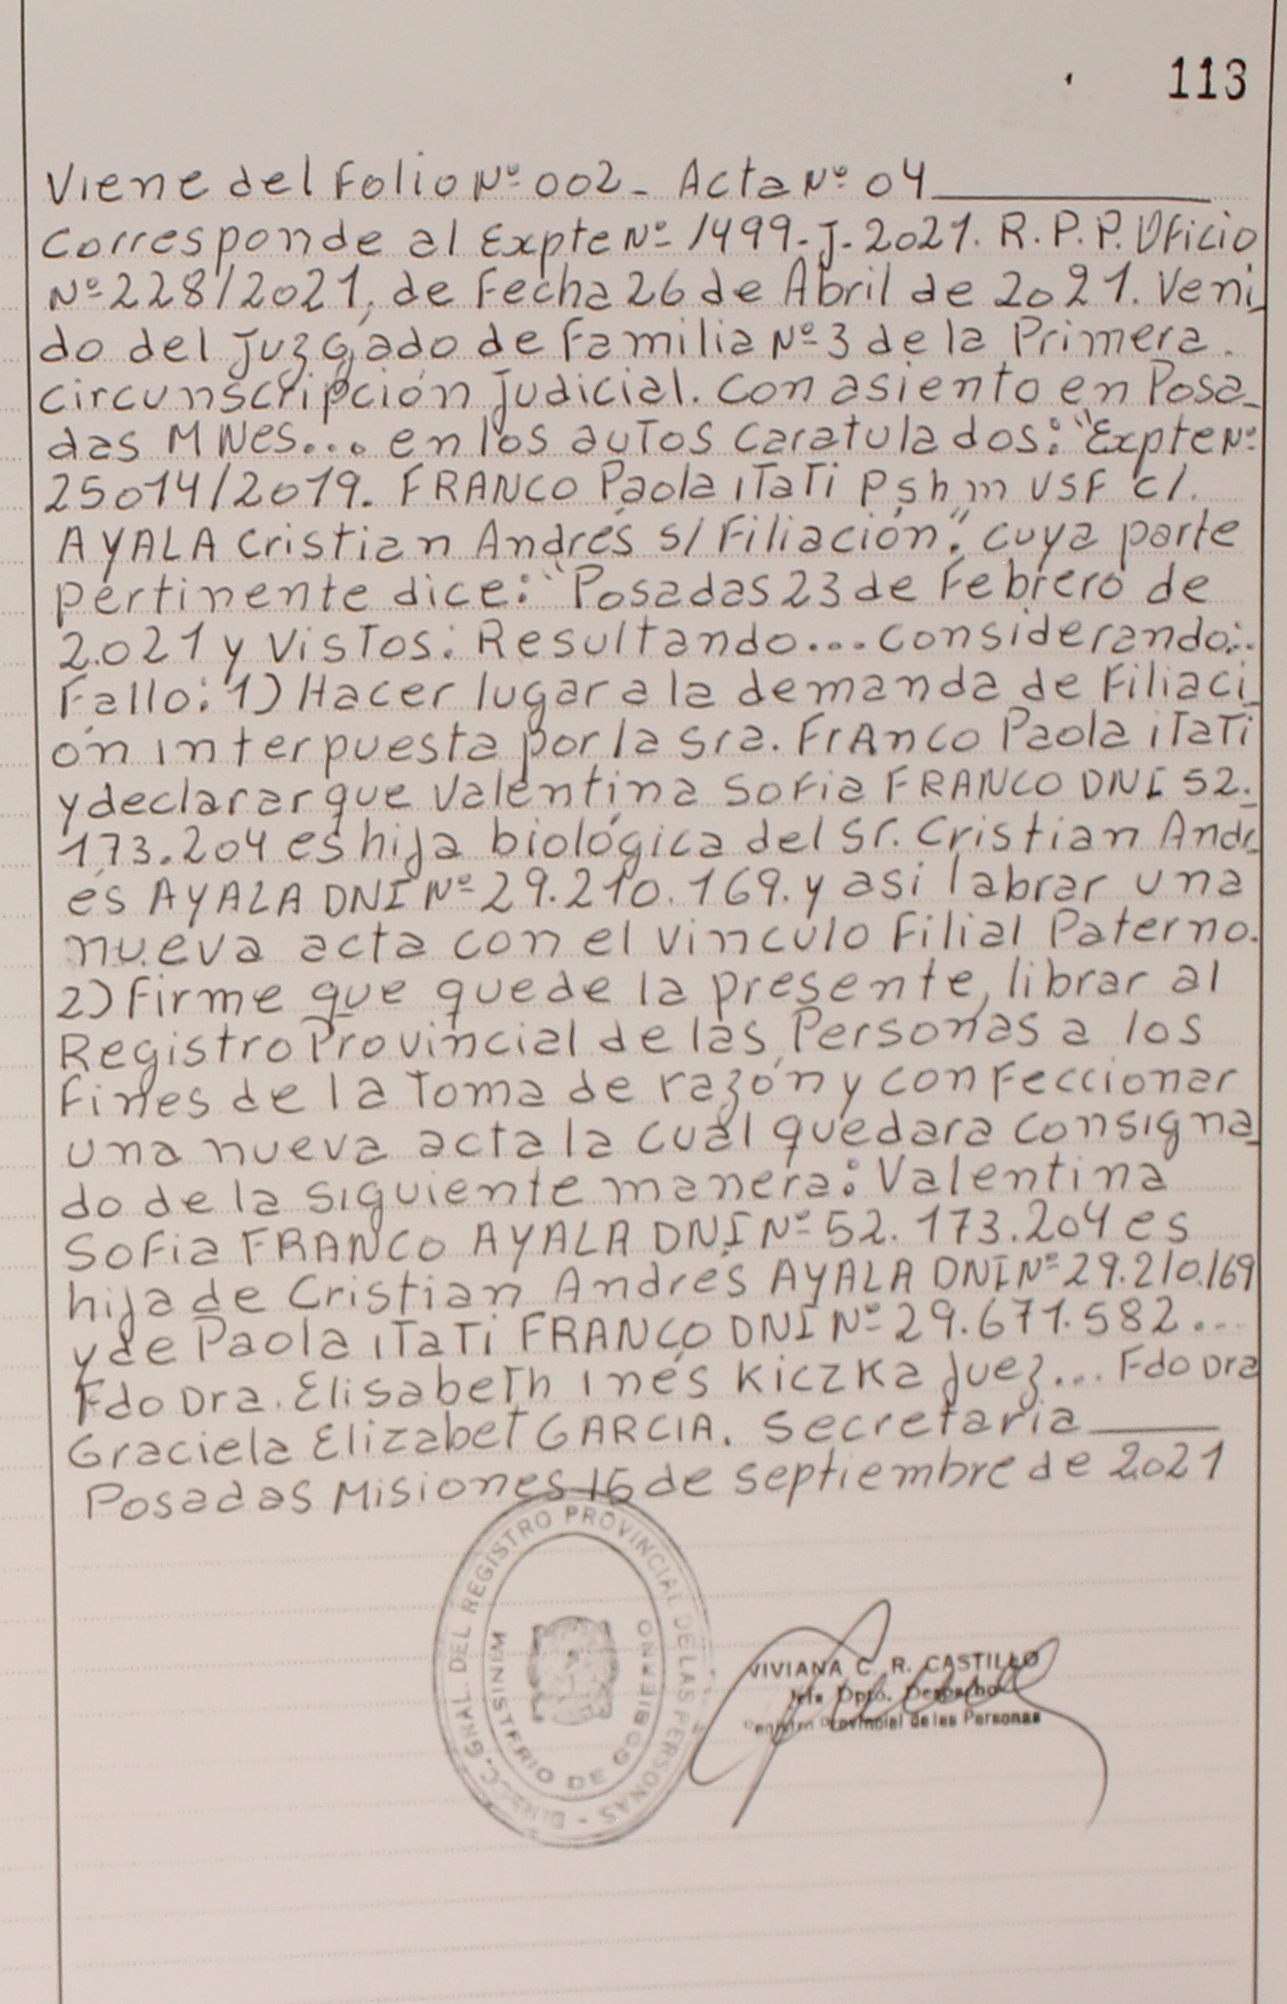 113
Viene del Folio Nº 002 - Acta Nº 04
Corresponde al Expte Nº 1499-J-2021. R.P.P. Oficio
Nº 228/2021, de Fecha 26 de Abril de 2021. Veni_
do del Juzgado de Familia Nº 3 de la Primera.
circunscripción Judicial. Con asiento en Posa_
das MNES... en los autos caratulados: "Expte Nº
25014/2019. FRANCO Paola iTaTi P s h m VSF c/.
AYALA Cristian Andrés s/ Filiación". cuya parte
pertinente dice: "Posadas 23 de Febrero de
2.021 y VisTos: Resultando... considerando:.
Fallo: 1) Hacer lugar a la demanda de Filiaci_
ón interpuesta por la sra. FrAnco Paola iTaTi
y declarar que Valentina Sofia FRANCO DNI 52.
173.204 es hija biológica del Sr. Cristian Andr_
és AYALA DNI Nº 29.210.169. y asi labrar una
nueva acta con el vinculo Filial Paterno.
2) Firme que quede la presente, librar al
Registro Provincial de las Personas a los
Fines de la Toma de razón y conFeccionar
una nueva acta la cual quedara consigna_
do de la siguiente manera: Valentina
Sofia FRANCO AYALA DNI Nº 52.173.204 es
hija de Cristian Andrés AYALA DNI Nº 29.210.169
y de Paola iTaTi FRANCO DNI Nº 29.671.582...
Fdo Dra. Elisabeth Inés Kiczka Juez... Fdo Dra
Graciela Elizabet GARCIA. Secretaria
Posadas Misiones 16 de septiembre de 2021
DIRECC. GRAL. DEL REGISTRO PROVINCIAL DE LAS PERSONAS -
MINISTERIO DE GOBIERNO
VIVIANA C. R. CASTILLO
Jefa Dpto. Despacho
Registro Provincial de las Personas